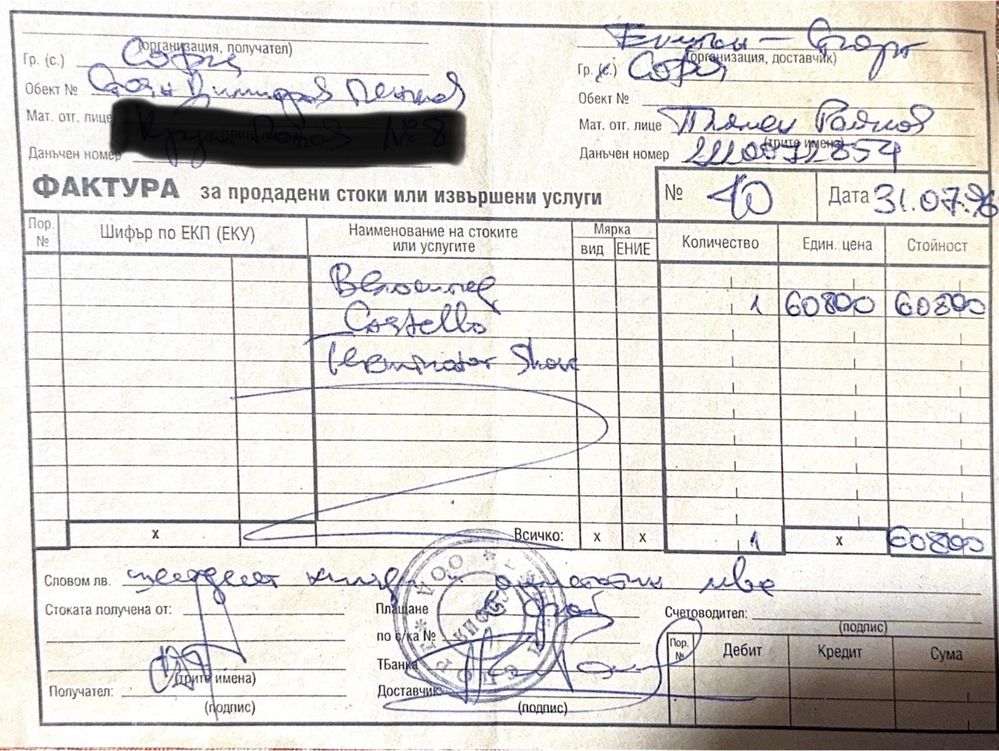 (организация, получател)
Гр. (с.) София
Обект № Стоян Димитров Пенков
Мат. отг. лице
Данъчен номер
Старт
(организация, доставчик)
Гр. (с.) София
Обект №
Мат. отг. лице Пламен
(трите имена)
Данъчен номер
ФАКТУРА за продадени стоки или извършени услуги
№ 40 Дата 31.07.96
Пор. № Шифър по ЕКП (ЕКУ) Наименование на стоките или услугите Мярка вид ЕНИЕ Количество Един. цена Стойност
Велосипед 1 60800 60800
Castello
Terminator
х Всичко: х х 1 х 60800
Словом лв. шестдесет хиляди и осемстотин лева
Стоката получена от:
Плащане
Счетоводител:
(подпис)
по с/ка №
(трите имена)
ТБанка
Получател:
(подпис)
Доставчик
(подпис)
Пор. № Дебит Кредит Сума